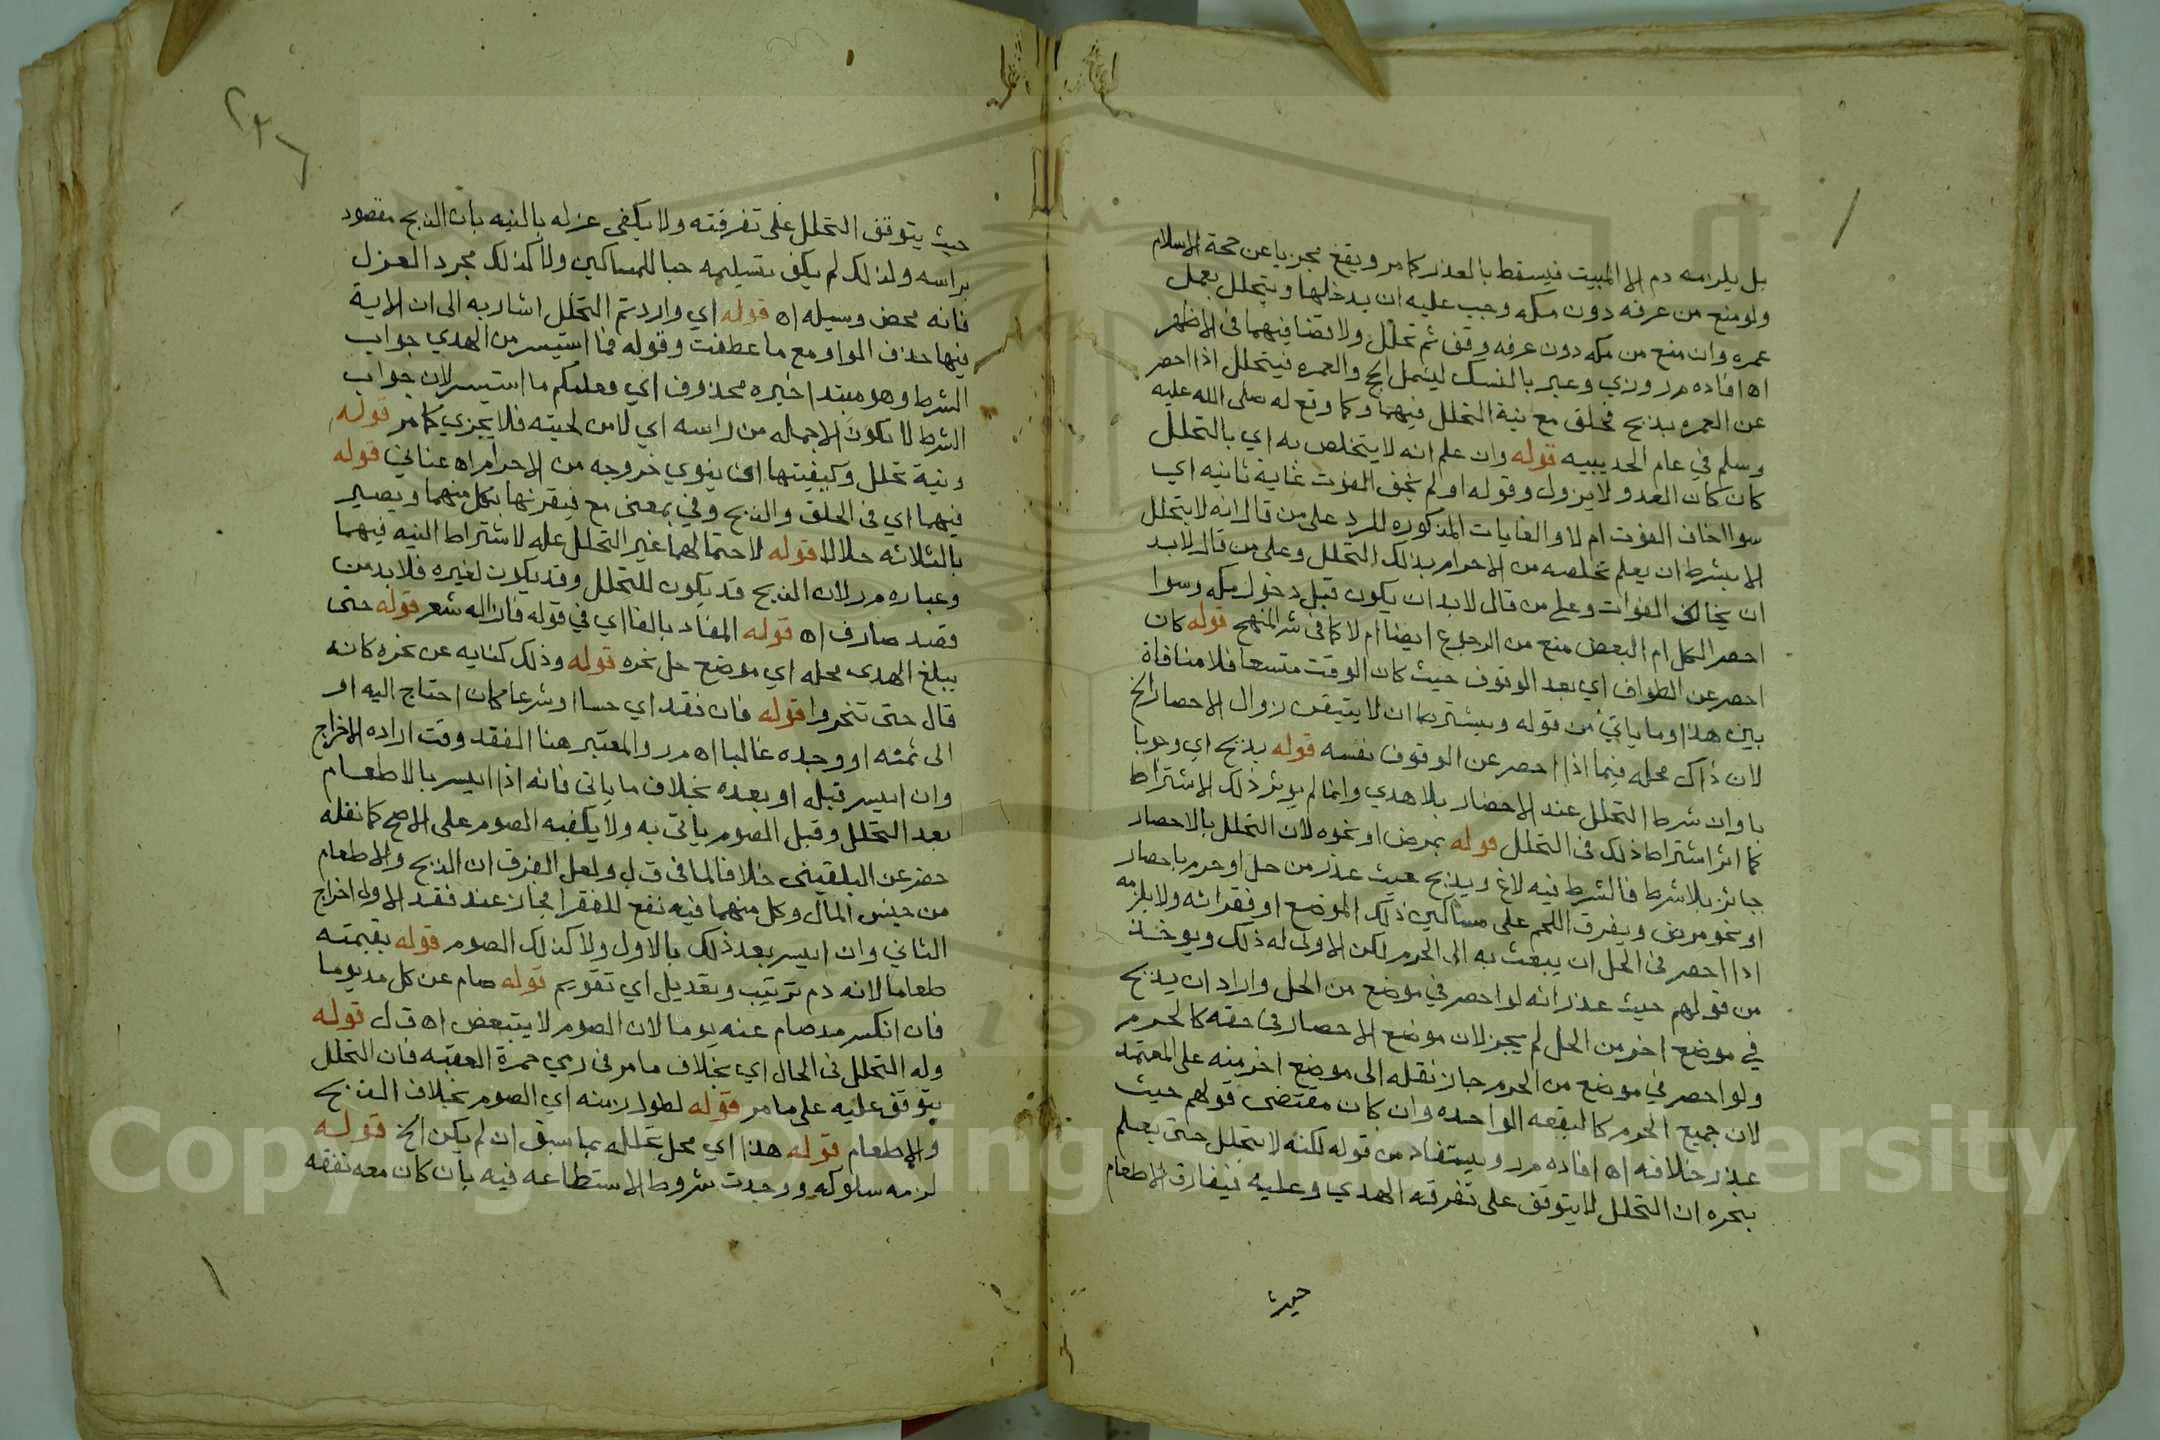 بل يلزمه دم الا المبيت فيسقط بالعذر كما مر ويقع مجزيا عن حجة الاسلام
ولو منع من عرفه دون مكه وجب عليه ان يدخلها ويتحلل بعمل
عمره وان منع من مكه دون عرفه وقف ثم تحلل ولا قضا فيهما في الاظهر
اه افاده مر وزي وعبر بالنسك ليشمل الحج والعمره فيتحلل اذا احصر
عن العمره بذبح فحلق مع نية التحلل فيهما وكما وقع له صلى الله عليه
وسلم في عام الحديبيه قوله وان علم انه لا يتخلص به اي بالتحلل
كان كان العدو لا يزول وقوله او لم يخف الفوت غاية ثانيه اي
سوا اخاف الفوت ام لا والغايات المذكوره للرد على من قال انه لا يتحلل
الا بشرط ان يعلم تخلصه من الاحرام بذلك التحلل وعلى من قال لا بد
ان يخاف الفوات وعلى من قال لا بد ان يكون قبل دخول مكه وسوا
احصر الكل ام البعض منع من الرجوع ايضا ام لا كما في شر المنهج قوله كان
احصر عن الطواف اي بعد الوقوف حيث كان الوقت متسعا فلا منافاة
بين هذا وما ياتي من قوله ويشترط ان لا يتيقن زوال الاحصار الخ
لان ذاك محله فيما اذا احصر عن الوقوف نفسه قوله بذبح اي وجوبا
با وان شرط التحلل عند الاحصار بلا هدي وانما لم يوثر ذلك الاشتراط
كما اثر اشتراط ذلك في التحلل قوله بمرض او نحوه لان التحلل بالاحصار
جايز بلا شرط فالشرط فيه لاغ ويذبح حيث عذر من حل او حرم باحصار
او نحو مرض ويفرق اللحم على مساكين ذلك الموضع او فقرائه ولا يلزمه
اذا احصر في الحل ان يبعث به الى الحرم لكن الاولى له ذلك ويوخذ
من قولهم حيث عذر انه لو احصر في موضع من الحل واراد ان يذبح
في موضع اخر من الحل لم يجز لان موضع الاحصار في حقه كالحرم
ولو احصر في موضع من الحرم جاز نقله الى موضع اخر منه على المعتمد
لان جميع الحرم كالبقعه الواحده وان كان مقتضى قولهم حيث
عذر خلافه اه افاده مر ويستفاد من قوله لكنه لا يتحلل حتى يعلم
بنحره ان التحلل لا يتوقف على تفرقه الهدي وعليه فيفارق الاطعام
حيث
حيث يتوقف التحلل على تفرقته ولا يكفي عزله بالنيه بان الذبح مقصود
براسه ولذلك لم يكف تسليمه حيا للمساكين ولا كذلك مجرد العزل
فانه محض وسيله اه قوله اي واردتم التحلل اشار به الى ان الاية
فيها حذف الواو مع ما عطفت وقوله فما استيسر من الهدي جواب
الشرط وهو مبتدا خبره محذوف اي فعليكم ما استيسر لان جواب
الشرط لا يكون الا جمله من راسه اي لا من لحيته فلا يجزي كما مر قوله
ونية تحلل وكيفيتها ان ينوي خروجه من الاحرام اه عناني قوله
فيهما اي في الحلق والذبح وفي بمعنى مع فيقرنها بكل منهما ويصير
بالثلاثه حلالا قوله لاحتمالهما غير التحلل عله لاشتراط النيه فيهما
وعباره مر لان الذبح قد يكون للتحلل وقد يكون لغيره فلا بد من
قصد صارف اه قوله المفاد بالفا اي في قوله فازاله شعر قوله حتى
يبلغ الهدي محله اي موضع حل نحره قوله وذلك كنايه عن نحره كانه
قال حتى تنحروا قوله فان فقد اي حسا او شرعا كان احتاج اليه او
الى ثمنه او وجده غالبا اه مر والمعتبر هنا الفقد وقت اراده الاخراج
وان ايسر قبله او بعده بخلاف ما ياتي فانه اذا ايسر بالاطعام
بعد التحلل وقبل الصوم ياتي به ولا يكفيه الصوم على الاصح كما نقله
حضر عن البلقيني خلافا لما في ق ل ولعل الفرق ان الذبح والاطعام
من جنس المال وكل منهما فيه نفع للفقرا فجاز عند فقد الاول اخراج
الثاني وان ايسر بعد ذلك بالاول ولا كذلك الصوم قوله بقيمته
طعاما لانه دم ترتيب وتعديل اي تقويم قوله صام عن كل مد يوما
فان انكسر مد صام عنه يوما لان الصوم لا يتبعض اه ق ل قوله
وله التحلل في الحال اي بخلاف ما مر في رمي جمرة العقبه فان التحلل
يتوقف عليه على ما مر قوله لطول زمنه اي الصوم بخلاف الذبح
والاطعام قوله هذا اي محل تحلله بما سبق ان لم يكن الخ قوله
لزمه سلوكه ووجدت شروط الاستطاعه فيه بان كان معه نفقه
Copyright © King Saud University